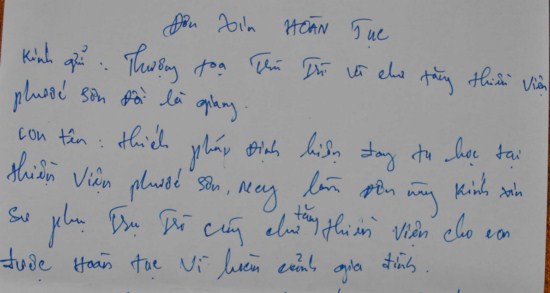 Đơn xin HOÀN Tục
Kính gửi: Thượng tọa Trụ Trì và chư tăng thiền Viện
phước sơn đồi lá giang.
con tên: thích pháp Định hiện đang tu học tại
thiền Viện phước sơn, nay làm đơn này Kính xin
sư phụ Trụ Trì cùng chư tăng thiền Viện cho con
được Hoàn tục vì hoàn cảnh gia đình.